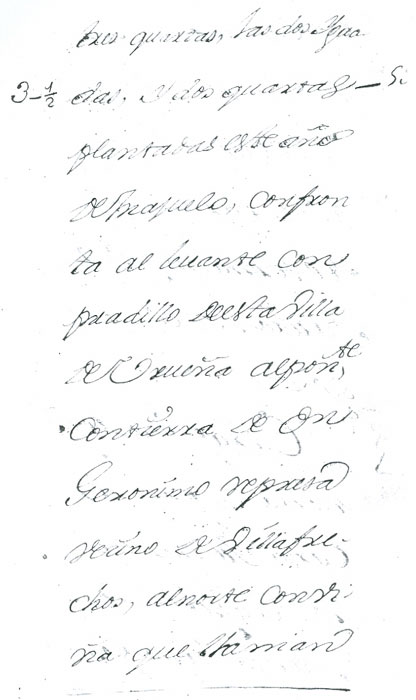 tres quartas, las dos Ygua
3-½ das, y dos quartas
plantadas este año
de majuelo, confron
ta al levante con
pradillo de esta villa
de Urueña alpon,te
con tierra de Dn
Geronimo represa
vecino de Villafre-
chos, alnorte con vi
ña que llaman